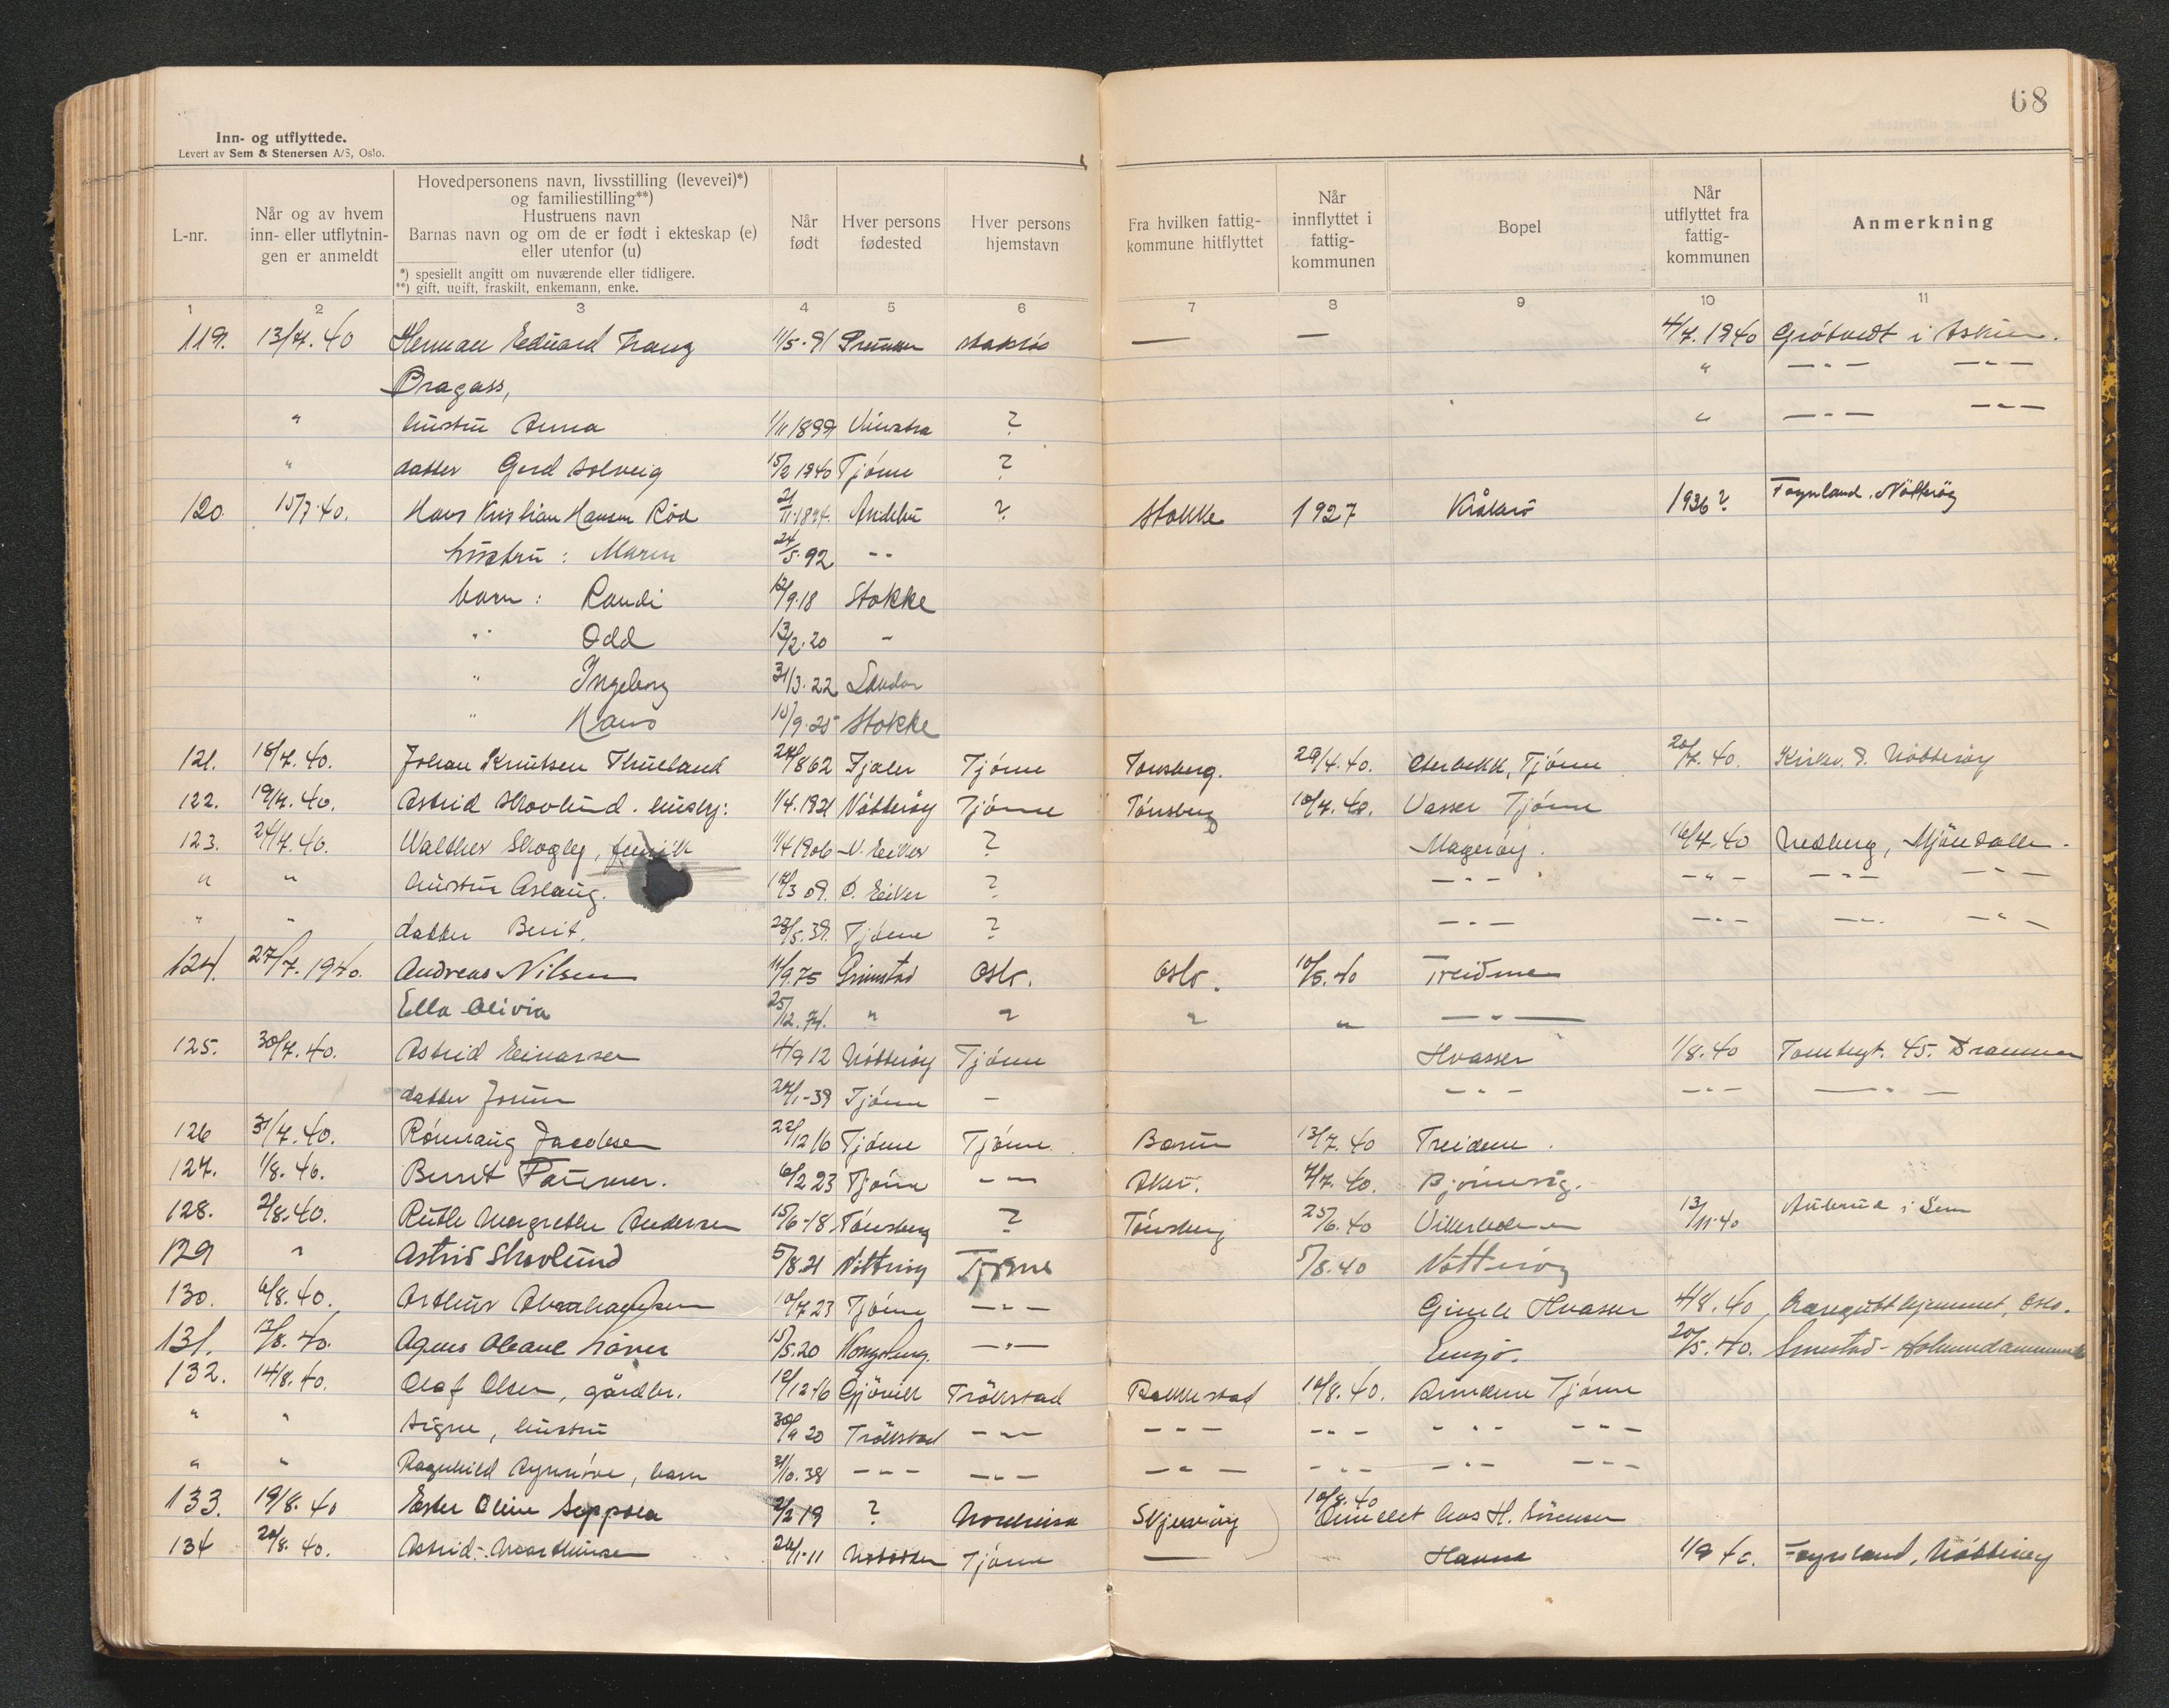 68
Inn- og utflyttede.
Levert av Sem & Stenersen A/S, Oslo.
L-nr.
Når og av hvem inn- eller utflytnin- gen er anmeldt
Hovedpersonens navn, livsstilling (levevei)*)
og familiestilling**)
Hustruens navn
Barnas navn og om de er født i ekteskap (e)
eller utenfor (u)
*) spesiellt angitt om nuværende eller tidligere.
**) gift, ugift, fraskilt, enkemann, enke.
Når født
Hver persons fødested
Hver persons hjemstavn
Fra hvilken fattig- kommune hitflyttet
Når innflyttet i fattig- kommunen
Bopel
Når utflyttet fra fattig- kommunen
Anmerkning
1 2 3 4 5 6 7 8 9 10 11
119. 13/7.40 Herman Eduard Franz 11/5-91 statsløs — — 4/7.1940 i Askim.
Pragass, " — " — — " —
" hustru Anna 1/11 1899 Vinstra ? " — " — — " —
" datter Gerd Solveig 15/2 1940 Tjøme ?
120 15/7.40. Hans Kristian Hansen Röd 21/11.1894. Andebu ? Stokke 1927 1936? Föynland. Nötteröy
hustru : Maren 24/5.92 --
barn : Randi 12/9.18 Stokke
" Odd 13/2.20 -
" Ingeborg 31/3.22 Sandar
" Hans 15/9.25 Stokke
121. 18/7.40. Johan Knutsen Thueland 27/8 62 Fjaler Tjøme Tønsberg. 29/4.40. Tjøme 20/7.40. Nøtterøy
122. 19/7.40. Astrid Skovlund. 1/4.1921 Nøtterøy Tjøme Tønsberg 10/7.40. Vasser Tjøme
123. 24/7.40. Walther Skogly, 11/4 1906 N. Eiker ? Magerøy. 16/7.40 Nedberg, Mjøndalen.
" " hustru Aslaug. 17/3 09. Ø. Eiker ? — " — — " — — " — — " —
" " datter Berit. 23/5.39. Tjøme ? — " — — " — — " — — " —
124. 27/7.1940. Andreas Nilsen 11/9.75 Grimstad Oslo. Oslo. 10/5.40 Treidene
Ella Olivia 25/12.74. " " " " — " —
125. 30/7.40. Astrid Einarsen 4/9 12 Nøtterøy Tjøme Hvasser 1/8.40 Tomtegt. 45. Drammen
datter Jorun 27/1-39 Tjøme — — " — — " — — " —
126 31/7.40. Rønnaug Jacobsen 22/12 16 Tjøme Tjøme Bærum 13/7.40 Treidene.
127. 1/8.40. Berit 6/2 23 Tjøme — " — Aker. 4/7.40. Bjørnevåg.
128. 2/8.40. Ruth Margrethe Andersen 15/6-18 Tønsberg ? Tønsberg 25/6.40 13/11.40 i Sem
129 " Astrid Skovlund 5/8.21 Nötteröy Tjøme 5/8.40 Nötteröy
130. 6/8.40. Arthur Abrahamsen 10/7 23 Tjøme — " — Gimle Hvasser 4/8.40 Oslo.
131. 12/8.40. Agnes 15/5.20 Kongsberg. — " — Engø. 20/5.40. Smestad -
132. 14/8.40. Olaf Olsen, gårdbr. 12/12-16 Gjövik Trökstad Rakkestad 10/8.40. Tjøme
" " Signe, hustru 30/9 20 Trökstad — " — — " — — " — — " — — " —
" " Ragnhild Synnöve, barn 2/10.38 — " — — " — — " — — " — — " — — " —
133. 19/8.40 Ester Oline Seppola 2/2 19 ? Nordreisa Skjervøy 10/8.40 hos H. Sörensen
134 20/8.40. Astrid 26/1-11 Tjøme — 1/9 40. Føynland, Nøtterøy